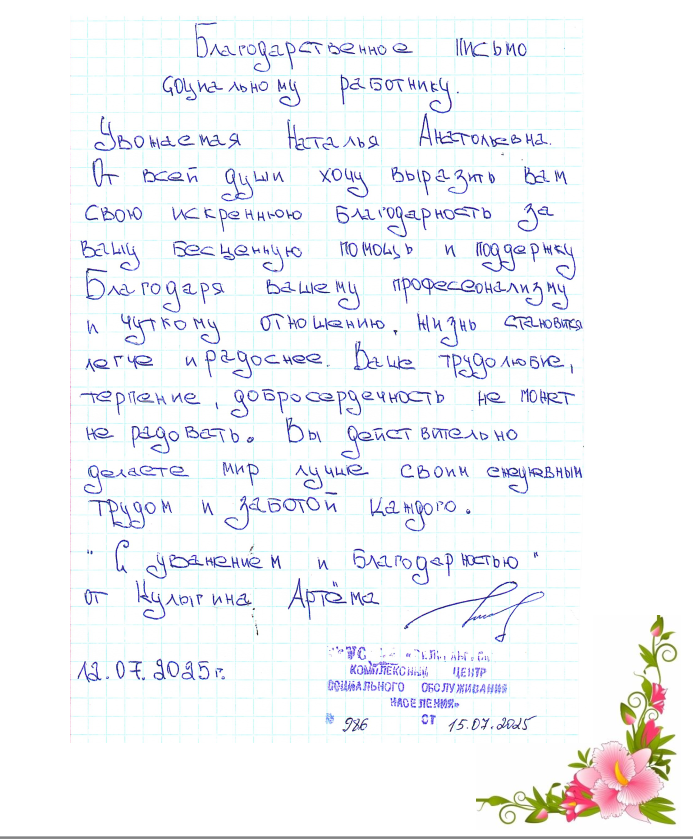 Благодарственное письмо
социальному работнику.
Уважаемая Наталья Анатольевна.
От всей души хочу выразить вам
свою искреннюю благодарность за
вашу бесценную помощь и поддержку
Благодаря вашему професеонализму
и чуткому отношению, жизнь становится
легче и радоснее. Ваше трудолюбие,
терпение, добросердечность не может
не радовать. Вы действительно
делаете мир лучше своим ежедневным
трудом и заботой каждого.
"С уважением и благодарностью"
от Кулыгина Артёма
12.07.2025г.
КОМПЛЕКСНЫЙ ЦЕНТР
СОЦИАЛЬНОГО ОБСЛУЖИВАНИЯ
НАСЕЛЕНИЯ»
№ 986 от 15.07.2025